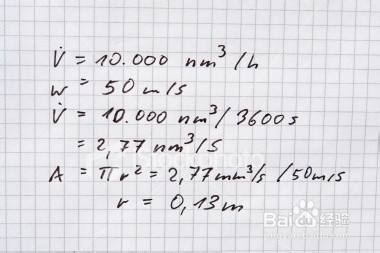 V̇ = 10.000 nm³/h
w = 50 m/s
V̇ = 10.000 nm³/3600s
= 2,77 nm³/s
A = πr² = 2,77 nm³/s /50m/s
r = 0,13m
Baidu经验